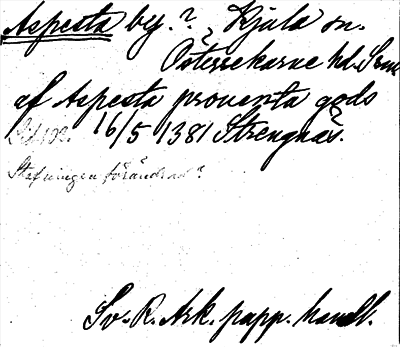 Aspesta by.? Kjula sn.
Österrekarne hd. Srml
af Aspesta prouenta gods
16/5 1381 Strengnäs.
Stafningen förändrad?
Sv. R. Ark. papp. handl.